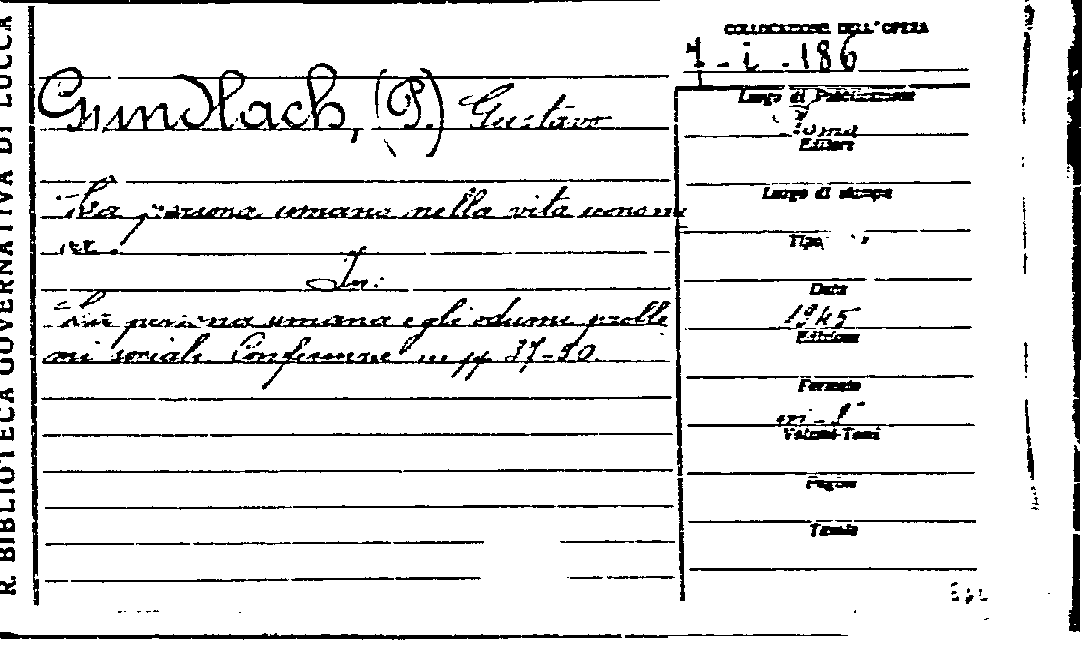 R. BIBLIOTECA GOVERNATIVA DI LUCCA
COLLOCAZIONE DELL'OPERA
7-i-186
Gundlach, (P.) Gustavo
La persona umana nella vita econom
ica.
In:
La persona umana e gli odierni proble
mi sociali. Conferenze in pp. 37-50
Luogo di Pubblicazione
Roma
Editore
Luogo di stampa
Tipo
Data
1945
Edizione
Formato
in-8°
Volumi-Tomi
Pagine
Tavole